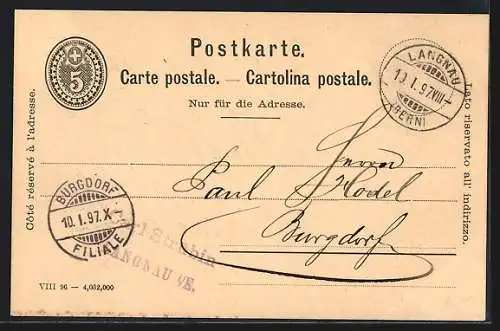 Postkarte.
Carte postale. — Cartolina postale.
Nur für die Adresse.
5
LANGNAU
10. I. 97. VIII-
(BERN)
Côté réservé à l'adresse.
Lato riservato all' indirizzo.
Herrn
Paul Hodel
Burgdorf
BURGDORF
10. I. 97. X-
FILIALE
Strübin
LANGNAU i/E.
VIII 96 — 4,032,000